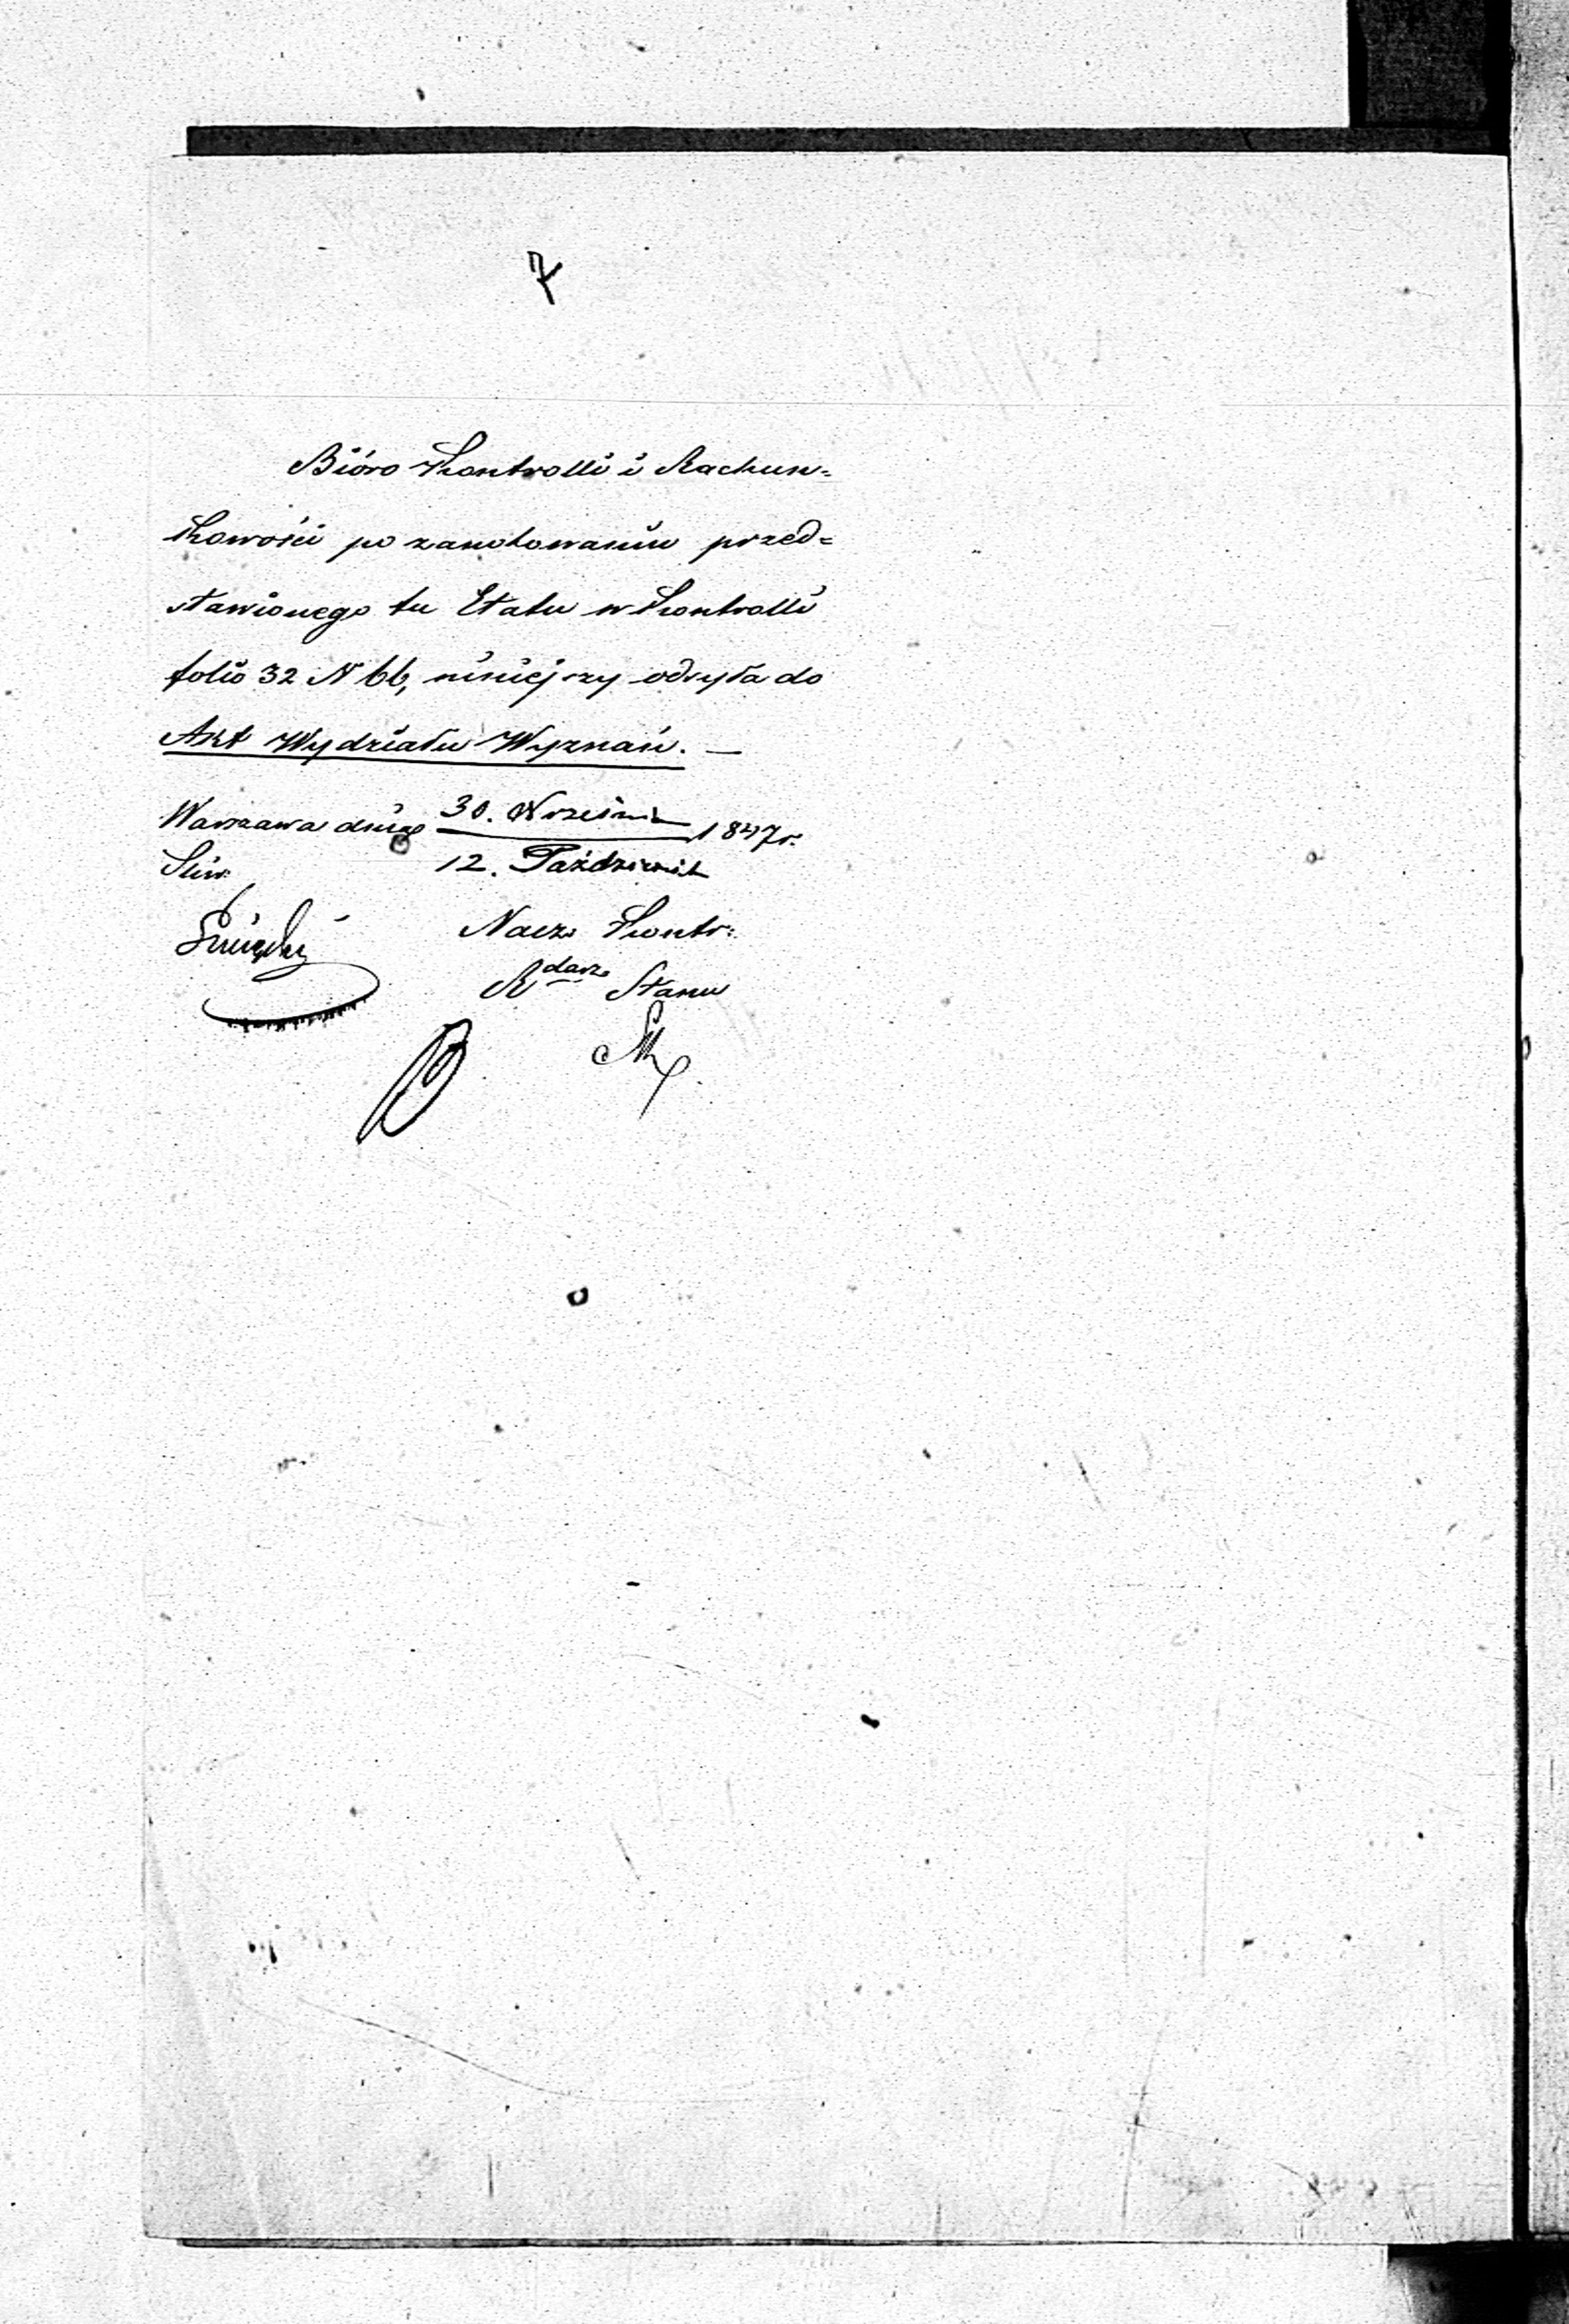 7
Bióro Kontrolli i Rachun=
kowości po zanotowaniu przed=
stawionego tu Etatu w Kontrolli
folio 32 N 66, niniejszy odsyła do
Akt Wydziału Wyznań. —
Warszawa dnia 30. Września 1847 r.
12. Październik
Nacz. Kontr:
Rdarz Stanu